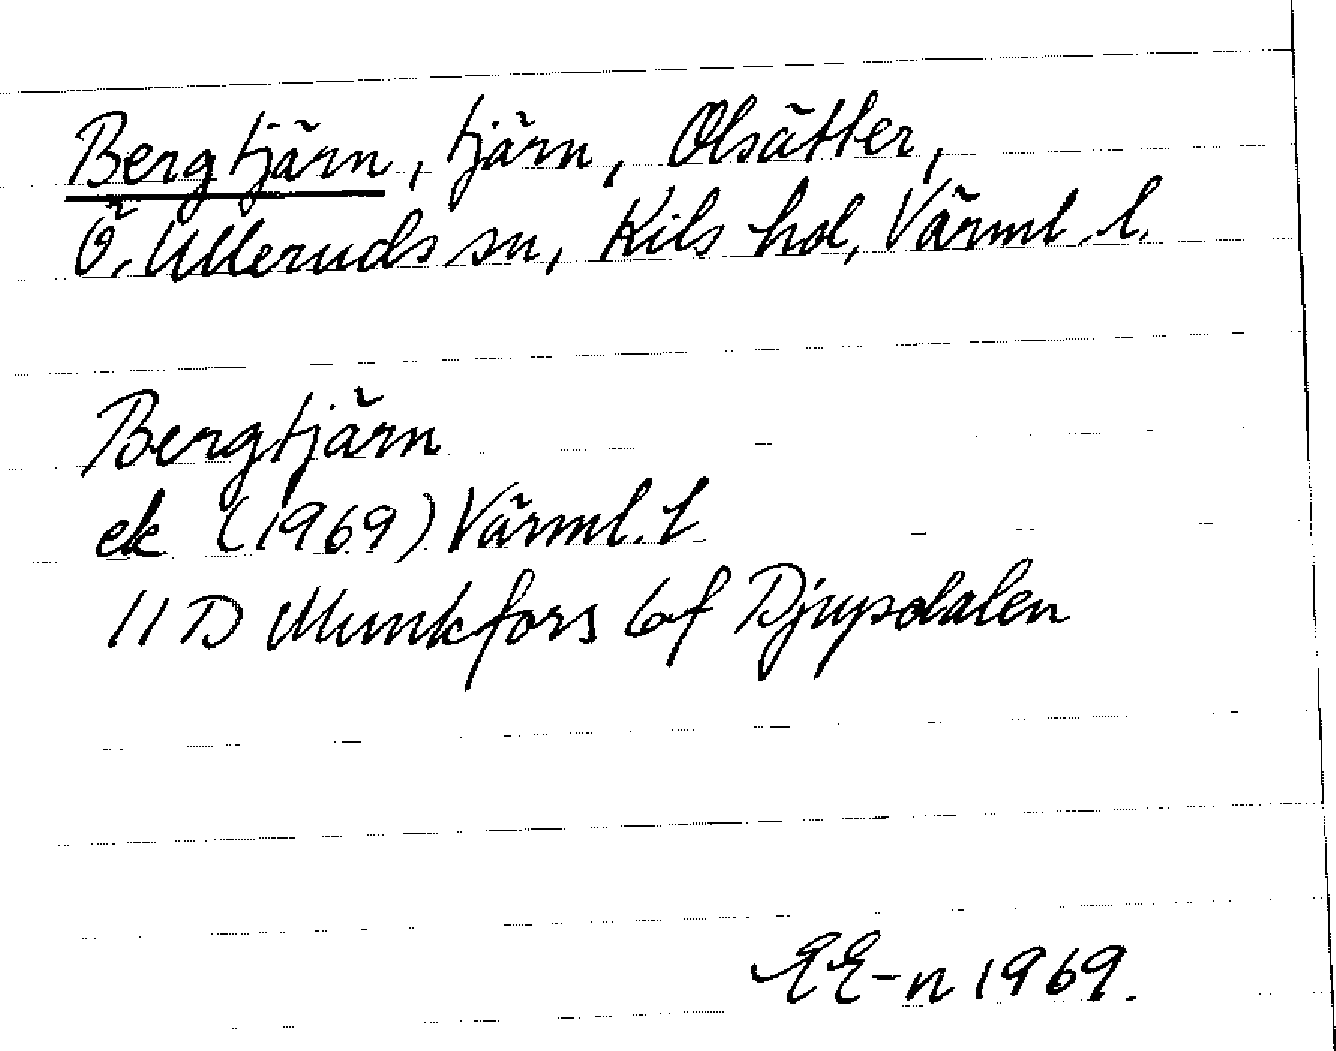 Bergtjärn, tjärn, Olsätter,
Ö. Ulleruds sn, Kils hd, Värml. l.
Bergtjärn
ek (1969) Värml. l
11 D Munkfors 6f Djupdalen
EE-n 1969.